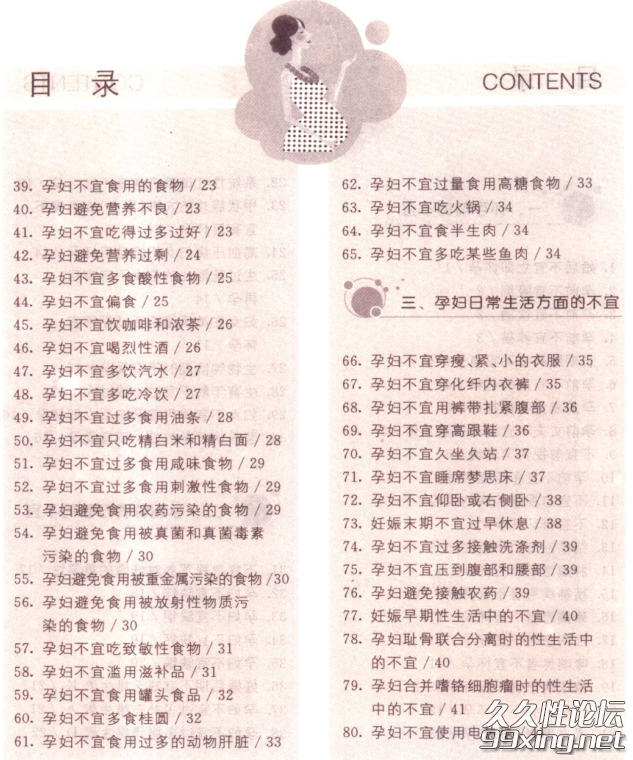 目 录
CONTENTS
39. 孕妇不宜食用的食物 / 23
40. 孕妇避免营养不良 / 23
41. 孕妇不宜吃得过多过好 / 23
42. 孕妇避免营养过剩 / 24
43. 孕妇不宜多食酸性食物 / 25
44. 孕妇不宜偏食 / 25
45. 孕妇不宜饮咖啡和浓茶 / 26
46. 孕妇不宜喝烈性酒 / 26
47. 孕妇不宜多饮汽水 / 27
48. 孕妇不宜多吃冷饮 / 27
49. 孕妇不宜过多食用油条 / 28
50. 孕妇不宜只吃精白米和精白面 / 28
51. 孕妇不宜过多食用咸味食物 / 29
52. 孕妇不宜过多食用刺激性食物 / 29
53. 孕妇避免食用农药污染的食物 / 29
54. 孕妇避免食用被真菌和真菌毒素
污染的食物 / 30
55. 孕妇避免食用被重金属污染的食物 /30
56. 孕妇避免食用被放射性物质污
染的食物 / 30
57. 孕妇不宜吃致敏性食物 / 31
58. 孕妇不宜滥用滋补品 / 31
59. 孕妇不宜食用罐头食品 / 32
60. 孕妇不宜多食桂圆 / 32
61. 孕妇不宜食用过多的动物肝脏 / 33
62. 孕妇不宜过量食用高糖食物 / 33
63. 孕妇不宜吃火锅 / 34
64. 孕妇不宜食半生肉 / 34
65. 孕妇不宜多吃某些鱼肉 / 34
三、孕妇日常生活方面的不宜
66. 孕妇不宜穿瘦、紧、小的衣服 / 35
67. 孕妇不宜穿化纤内衣裤 / 35
68. 孕妇不宜用裤带扎紧腹部 / 36
69. 孕妇不宜穿高跟鞋 / 36
70. 孕妇不宜久坐久站 / 37
71. 孕妇不宜睡席梦思床 / 37
72. 孕妇不宜仰卧或右侧卧 / 38
73. 妊娠末期不宜过早休息 / 38
74. 孕妇不宜过多接触洗涤剂 / 39
75. 孕妇不宜压到腹部和腰部 / 39
76. 孕妇避免接触农药 / 39
77. 妊娠早期性生活中的不宜 / 40
78. 孕妇耻骨联合分离时的性生活中
的不宜 / 40
79. 孕妇合并嗜铬细胞瘤时的性生活
中的不宜 / 41
80. 孕妇不宜使用电
久久性论坛
99xing.net